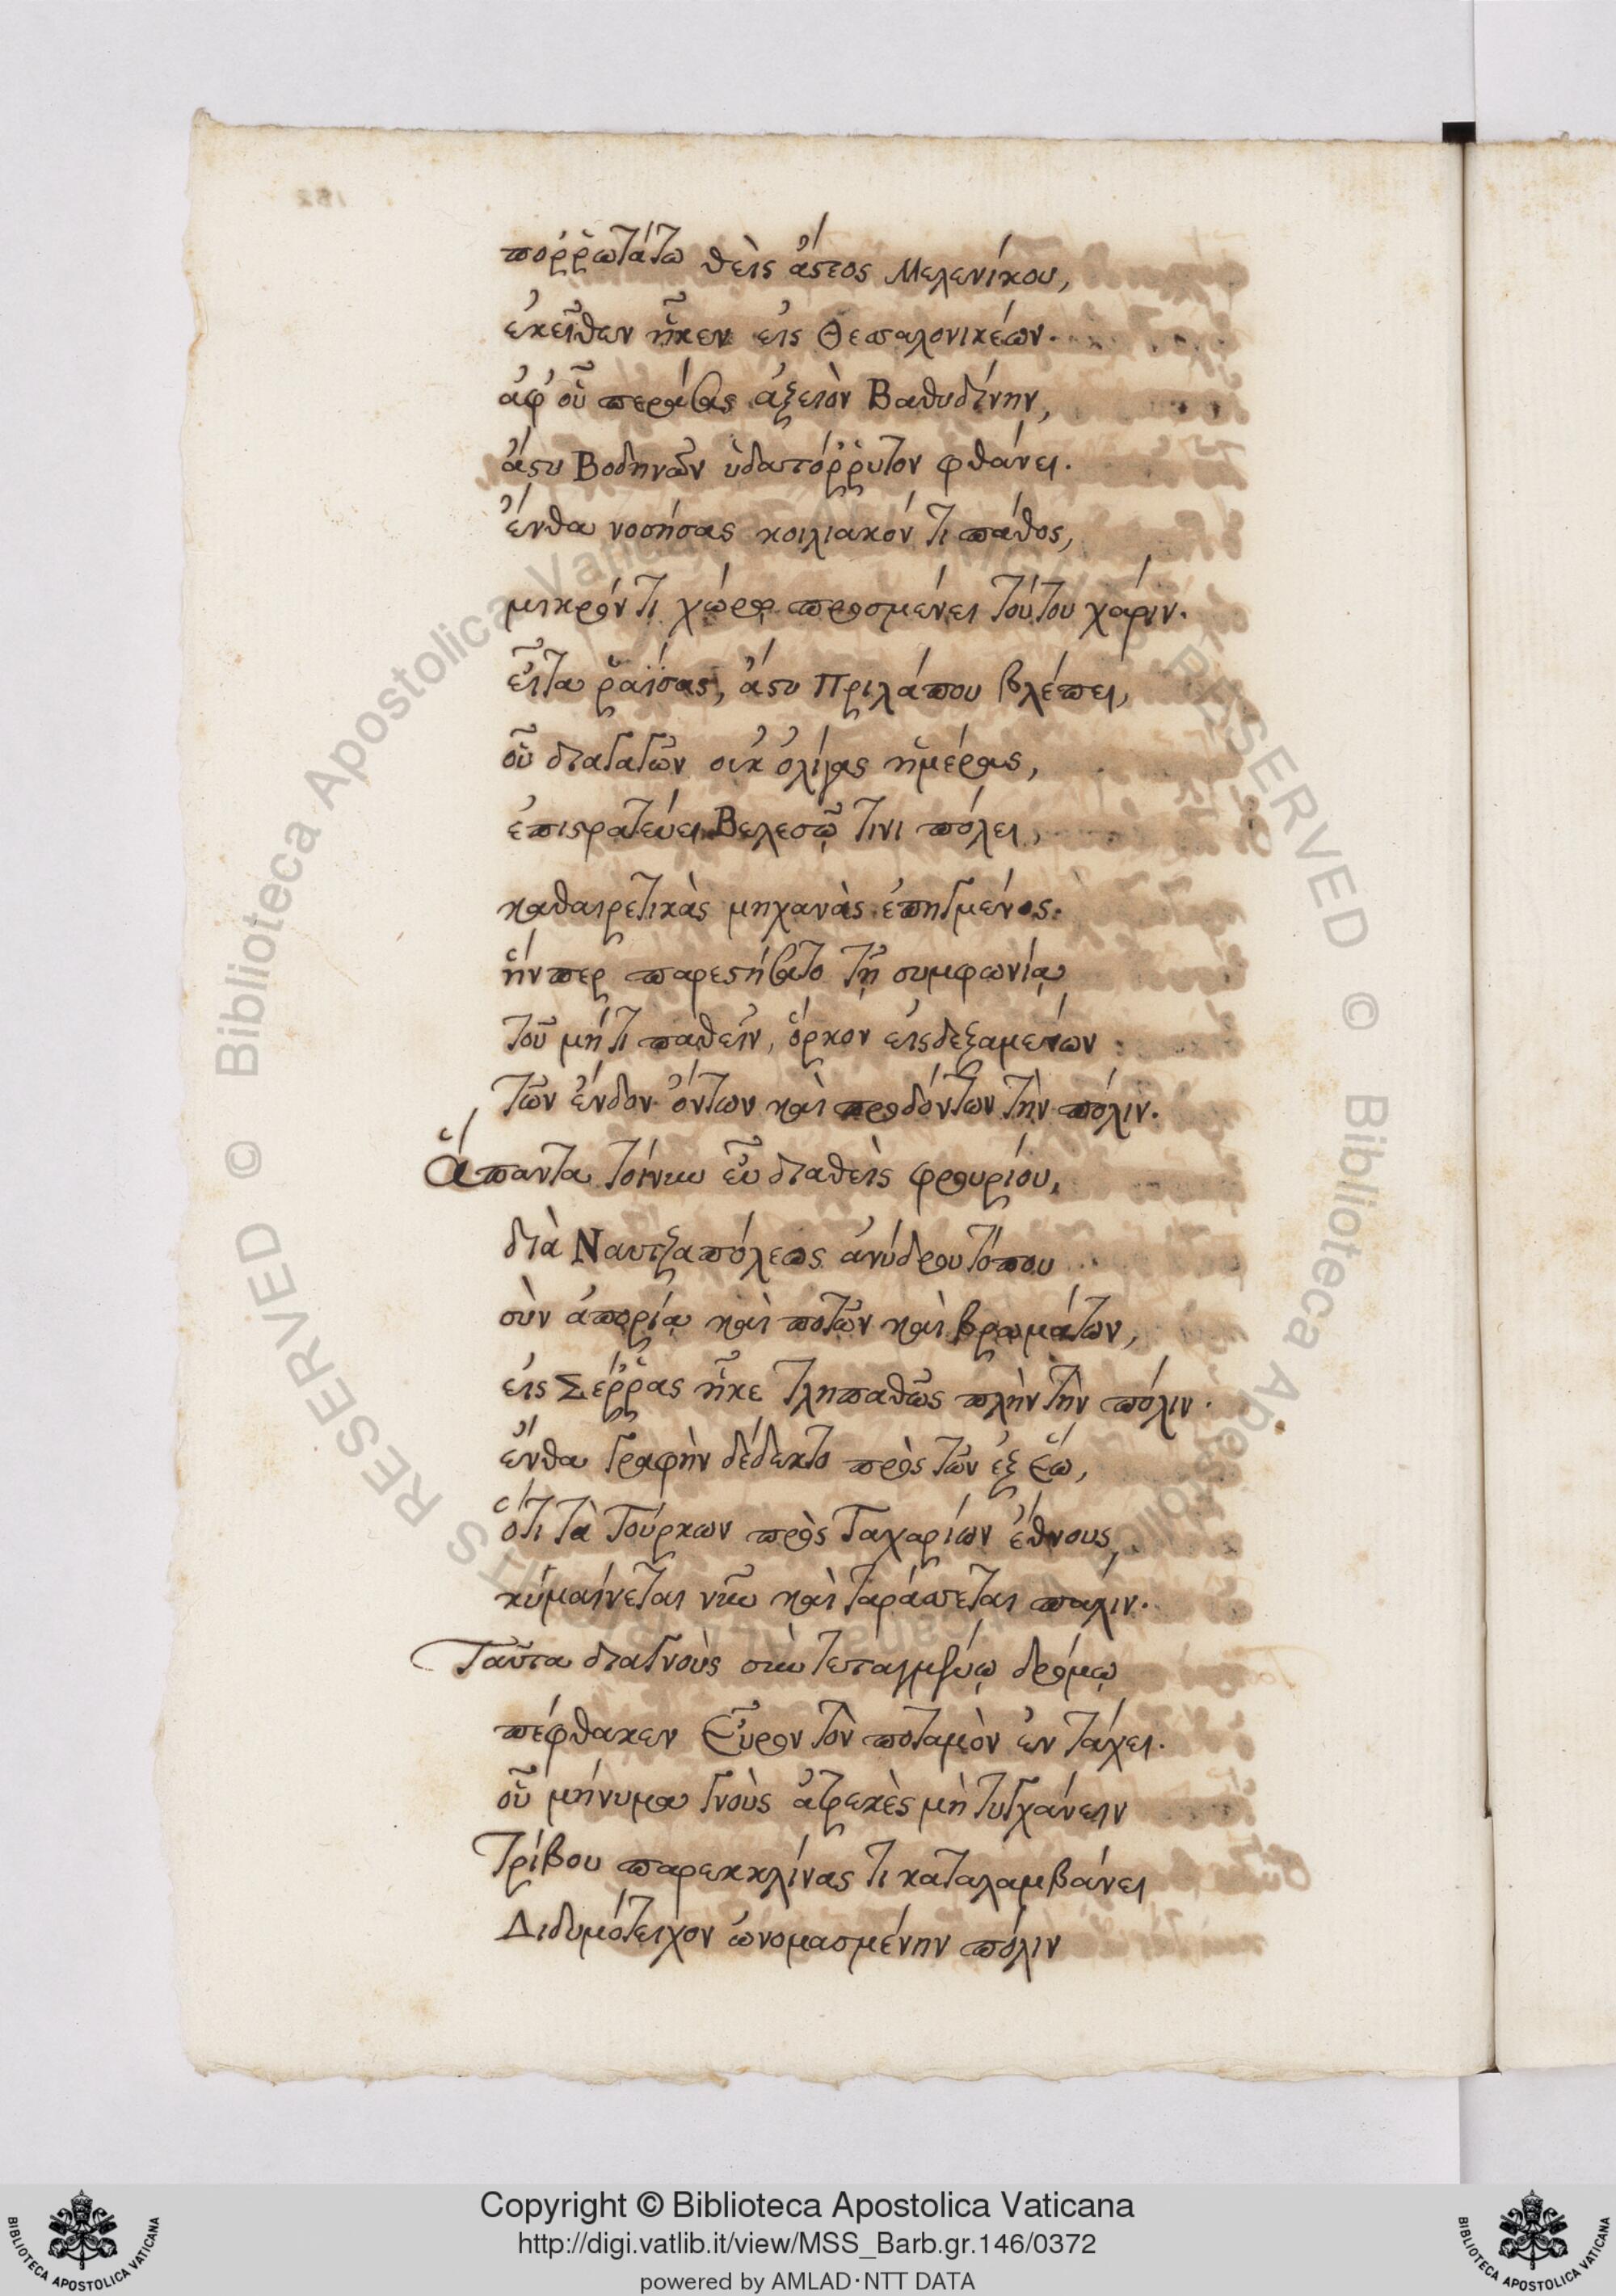 πορῤῥωτάτω θεὶς ἄστεος Μελενίκου,
ἐκεῖθεν ἧκεν εἰς Θεσσαλονικέων.
ἀφ' οὗ περάσας ἀξειὸν Βαθυδίνην,
ἄστυ Βοδηνῶν ὑδατόῤῥυτον φθάνει.
ἔνθα νοσήσας κοιλιακόν τι πάθος,
μικρόν τι χώρᾳ προσμένει τούτου χάριν.
εἶτα ῥαΐσας, ἄστυ Πριλάπου βλέπει,
οὗ διαγαγὼν οὐκ ὀλίγας ἡμέρας,
ἐπιστρατεύει Βελεσῷ τινι πόλει,
καθαιρετικὰς μηχανὰς ἐπηγμένος.
ἥνπερ παρεστήσατο τῇ συμφωνίᾳ
τοῦ μή τι παθεῖν, ὅρκον εἰσδεξαμένων
τῶν ἔνδον ὄντων καὶ προδόντων τὴν πόλιν.
Ἅπαντα τοίνυν εὖ διαθεὶς φρουρίου,
διὰ Ναυτζαπόλεως ἀνύδρου τόπου
σὺν ἀπορίᾳ καὶ ποτῶν καὶ βρωμάτων,
εἰς Σέῤῥας ἧκε τληπαθῶς πλὴν τὴν πόλιν.
ἔνθα γραφὴν δέδεκτο πρὸς τῶν ἐξ ἕω,
ὅτι τὰ Τούρκων πρὸς Ταχαρίων ἔθνους
κυμαίνεται νῦν καὶ ταράσσεται πάλιν.
Ταῦτα διαγνοὺς σὺν τεταγμένῳ δρόμῳ
πέφθακεν Εὖρον τὸν ποταμὸν ἐν τάχει.
οὗ μήνυμα γνοὺς ἀτρεκὲς μὴ τυγχάνειν
τρίβου παρεκκλίνας τι καταλαμβάνει
Διδυμότειχον ὠνομασμένην πόλιν
© Biblioteca Apostolica Vaticana
Copyright © Biblioteca Apostolica Vaticana
http://digi.vatlib.it/view/MSS_Barb.gr.146/0372
powered by AMLAD·NTT DATA
BIBLIOTECA APOSTOLICA VATICANA
BIBLIOTECA APOSTOLICA VATICANA